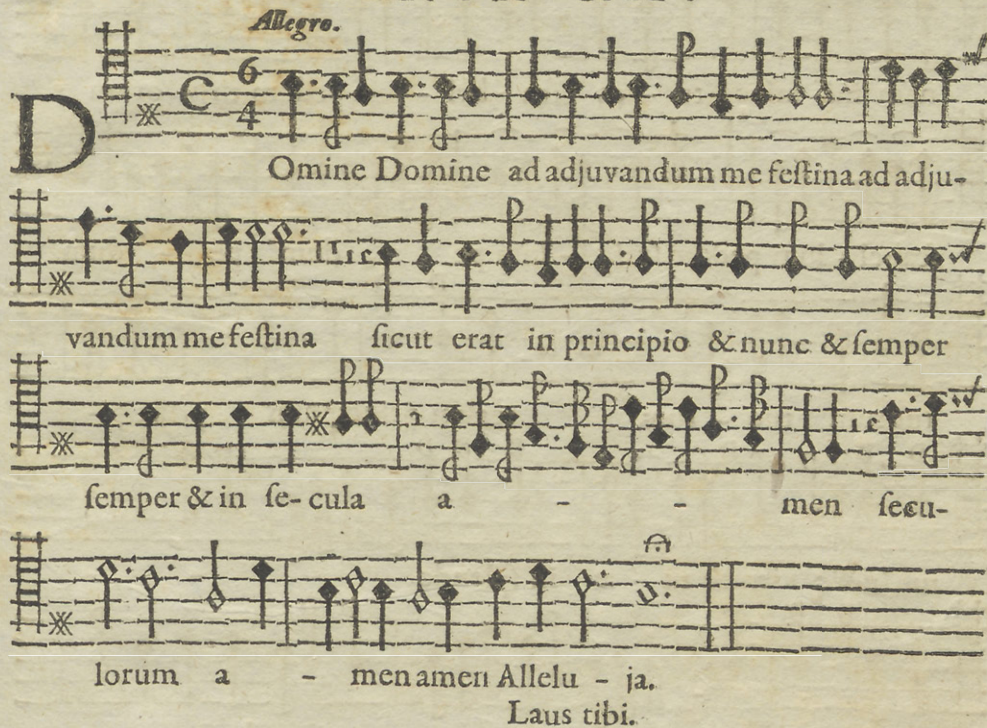 Allegro.
C 6 4
DOmine Domine ad adjuvandum me feſtina ad adju-
vandum me feſtina ſicut erat in principio & nunc & ſemper
ſemper & in ſe- cula a - - men ſecu-
lorum a - men amen Allelu - ja.
Laus tibi.